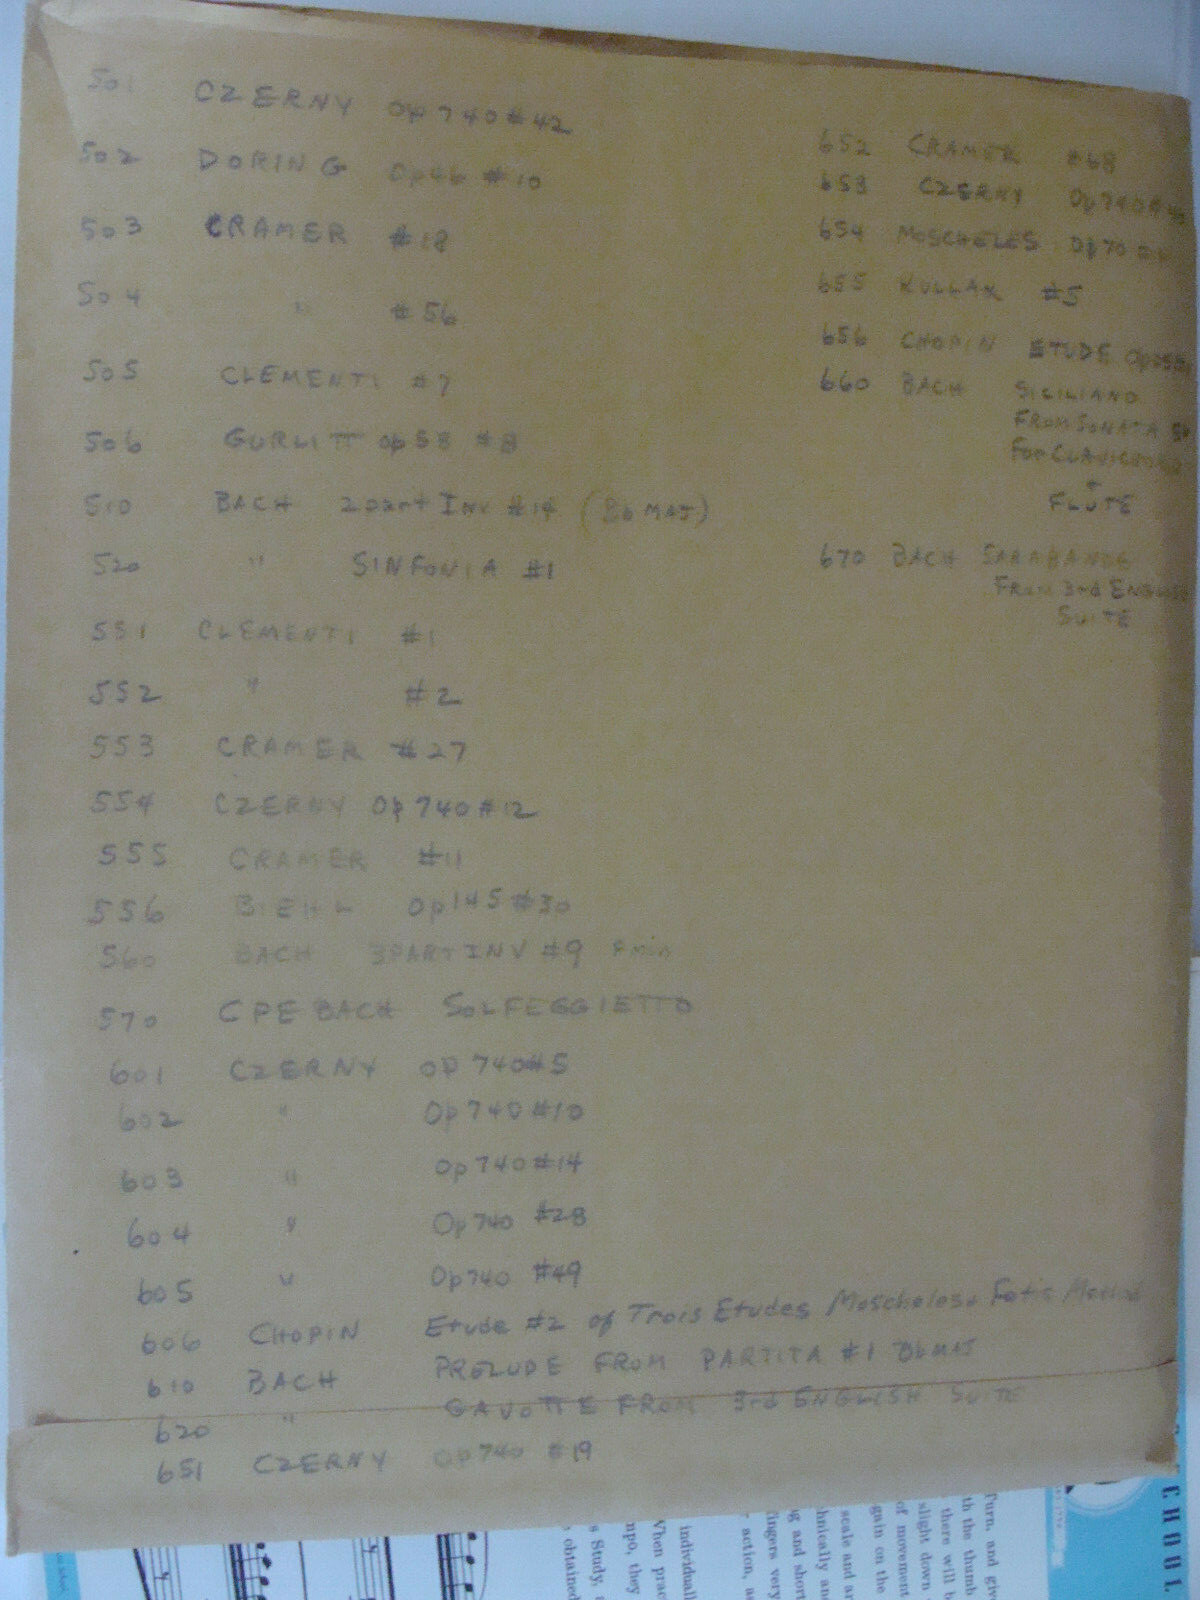 501 CZERNY Op 740 #42
502 DORING Op46 #10
503 CRAMER #18
504 " #56
505 CLEMENTI #7
506 GURLITT Op 58 #8
510 BACH 2 part INV #14 (Bb MAJ)
520 " SINFONIA #1
551 CLEMENTI #1
552 " #2
553 CRAMER #27
554 CZERNY Op 740 #12
555 CRAMER #11
556 BIEHL Op 145 #30
560 BACH 3 PART INV #9 Fmin
570 CPE BACH SOLFEGGIETTO
601 CZERNY Op 740 #5
602 " Op 740 #10
603 " Op 740 #14
604 " Op 740 #28
605 " Op 740 #49
606 CHOPIN Etude #2 of Trois Etudes Moscheles & Fetis Method
610 BACH PRELUDE FROM PARTITA #1 Bb MAJ
620 " GAVOTTE FROM 3rd ENGLISH SUITE
651 CZERNY Op 740 #19
652 CRAMER #68
653 CZERNY Op 740
654 MOSCHELES Op 70
655 KULLAK #5
656 CHOPIN ETUDE
660 BACH SICILIANO
FROM SONATA
FOR
FLUTE
670 BACH SARABANDE
FROM 3rd ENGLISH
SUITE
Turn, and give
th the thumb
there will b
slight down
of movement
gain on the
scale and ar
chnically and
g and short
fingers very
action, a
individuall
When prac
mpo, they
s Study,
obtained